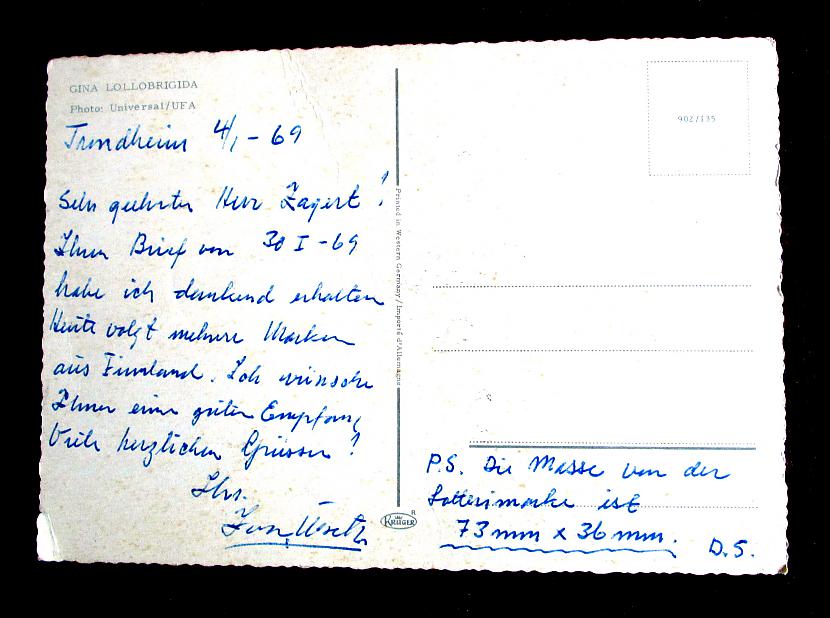 GINA LOLLOBRIGIDA
Photo: Universal/UFA
Trondheim 4/1 - 69
Sehr geehrter Herr Zagert!
Ihren Brief von 30 I - 69
habe ich dankend erhalten
Heute volgt mehrere Marken
aus Finnland. Ich wünsche
Ihnen einen guten Empfang
Viele herzlichen Grüssen!
Ihrs.
Printed in Western Germany / Importé d'Allemagne
KRÜGER
R
902/135
P.S. Die Masse von der
Lotterimarke ist
73 mm x 36 mm.
D.S.